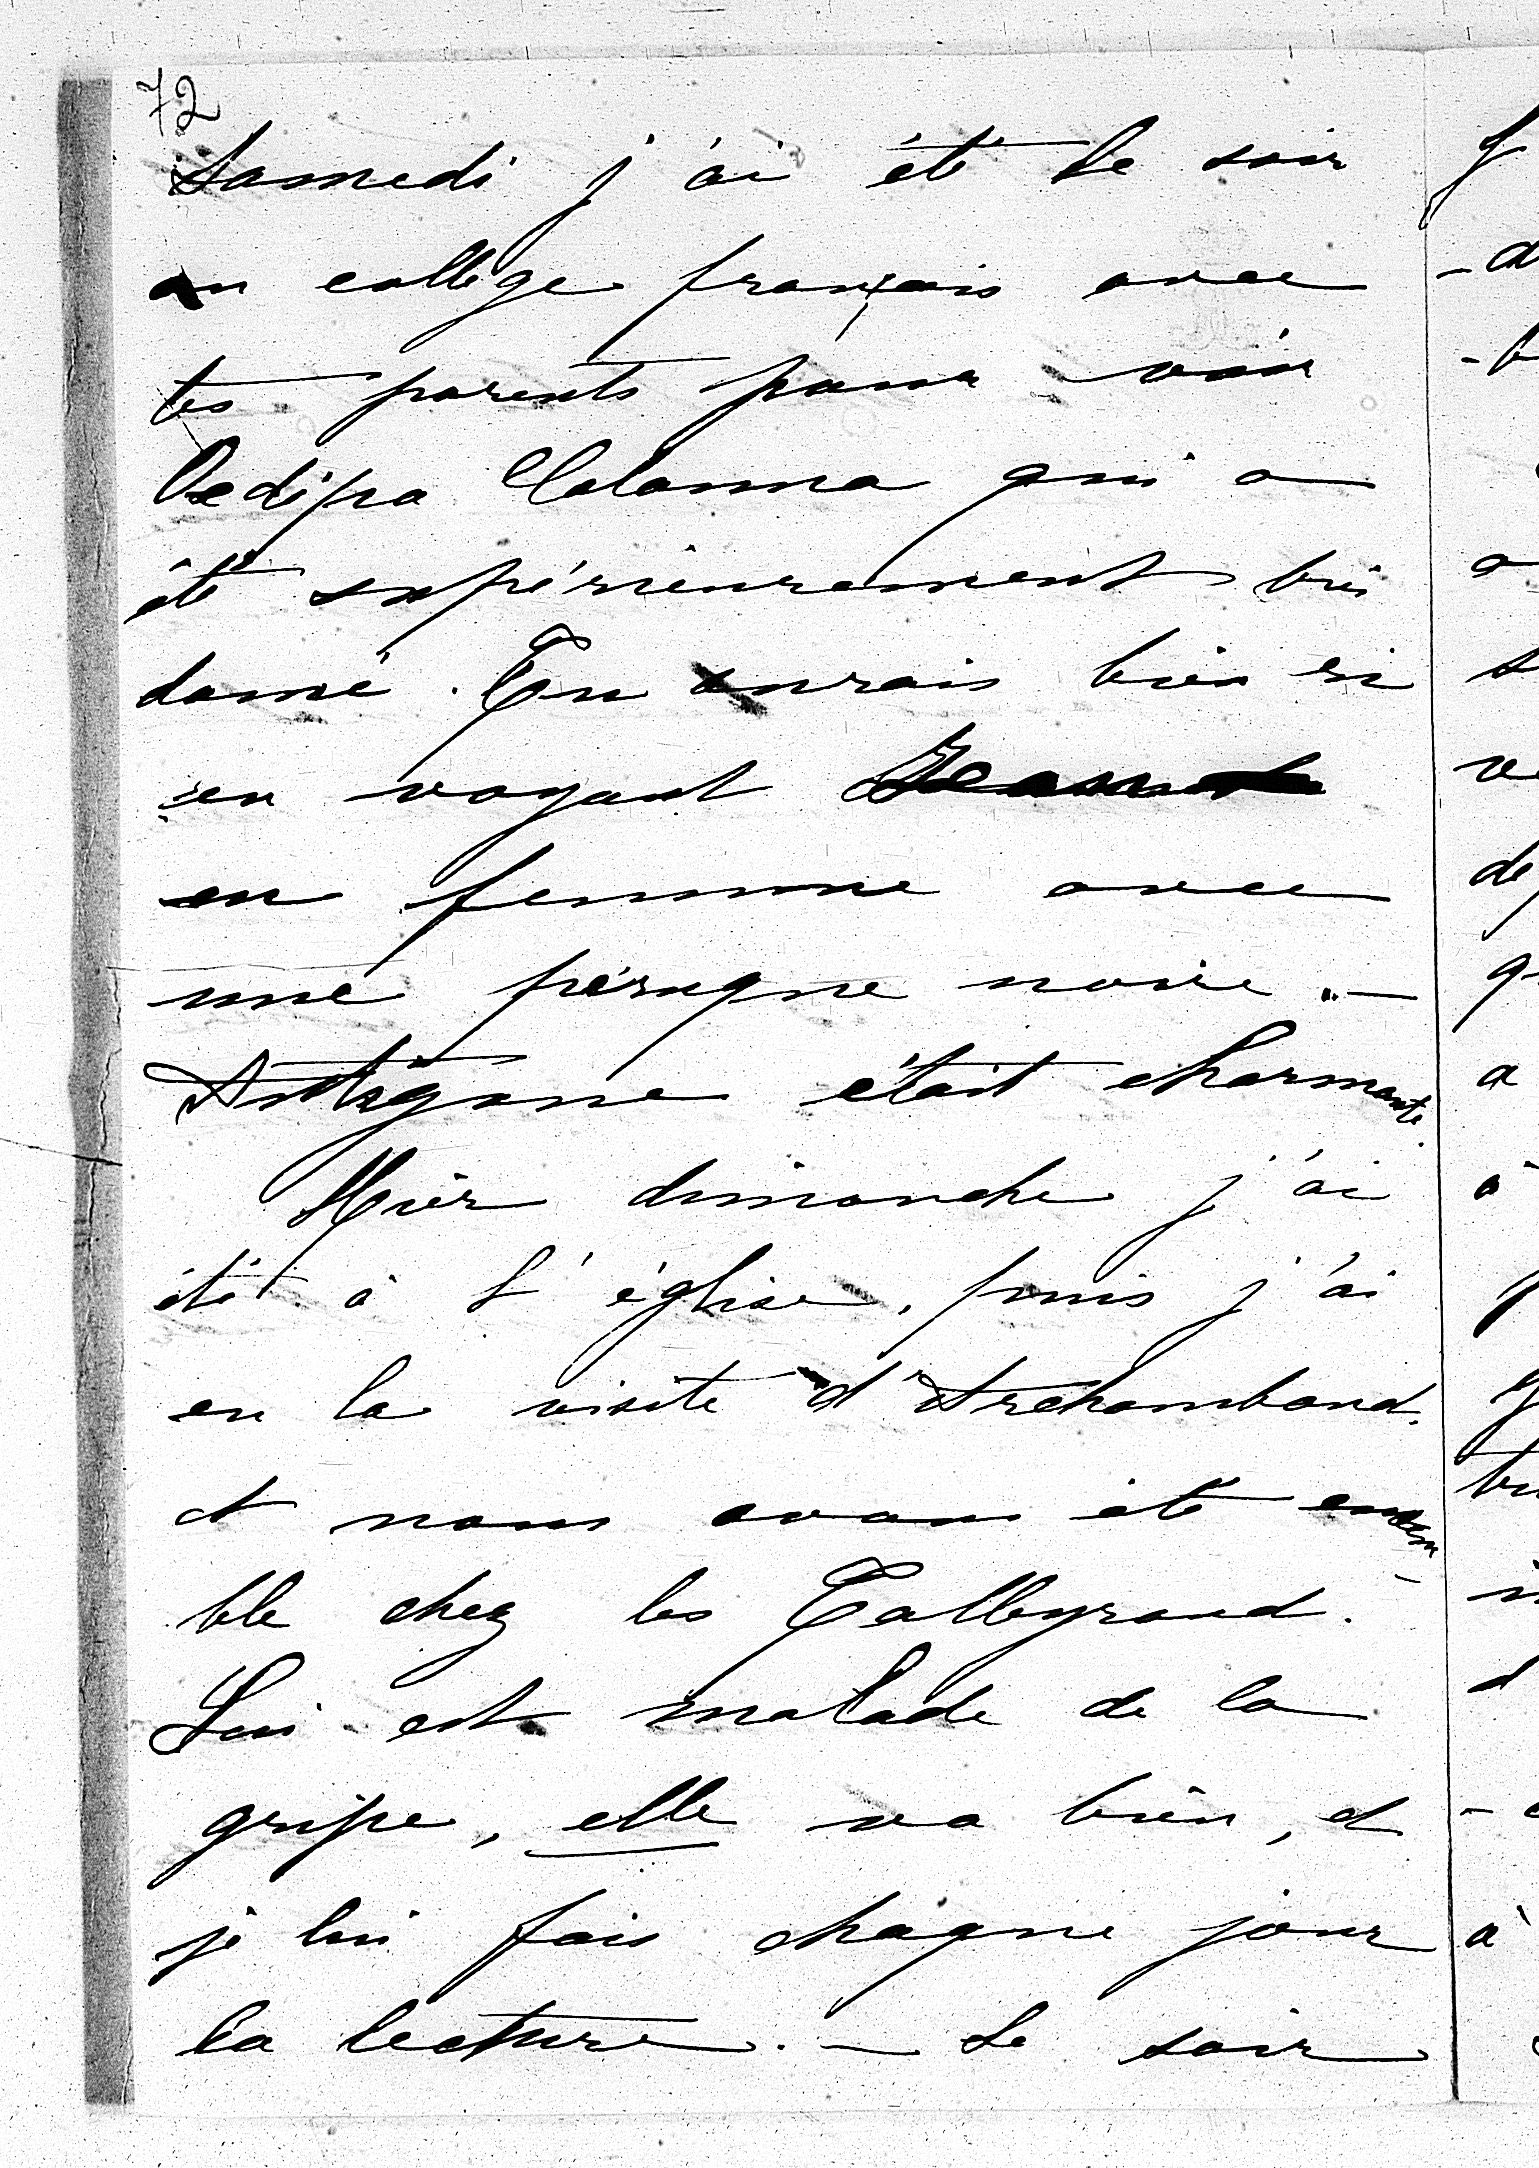 72
Samedi j'ai été le soir
au collège français avec
tes parents pour voir
Oedipa Colonna qui a
été supérieurement bri
damé. Tu aurais bien ri
en voyant
en femme avec
une péruque noire. —
Antigone était charmante.
Hier dimanche j'ai
été à l'église, puis j'ai
eu la visite d'Archambaud.
et nous avons été ensem-
ble chez les Talleyrand.
Lui est malade de la
gripe, elle va bien, et
je lui fais chaque jour
la lecture. — Le soir